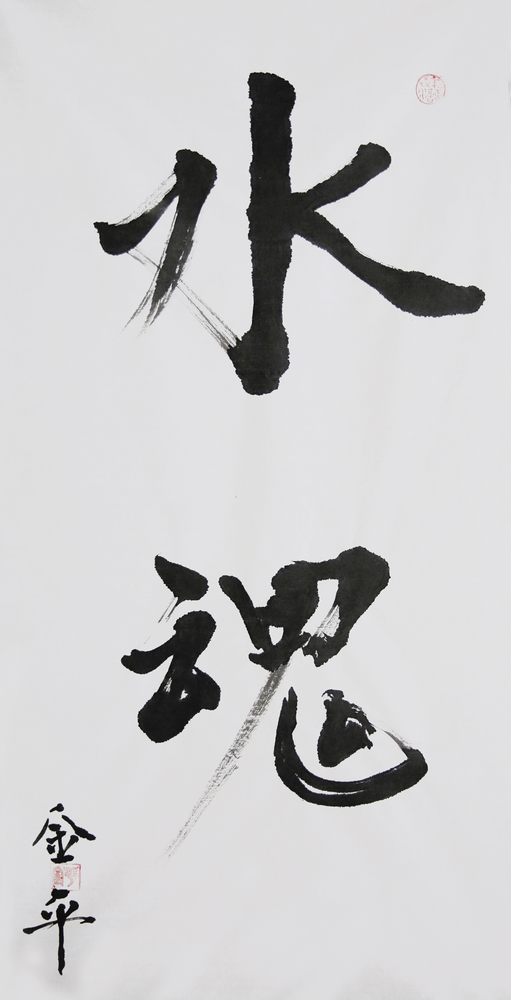 水魂
金平